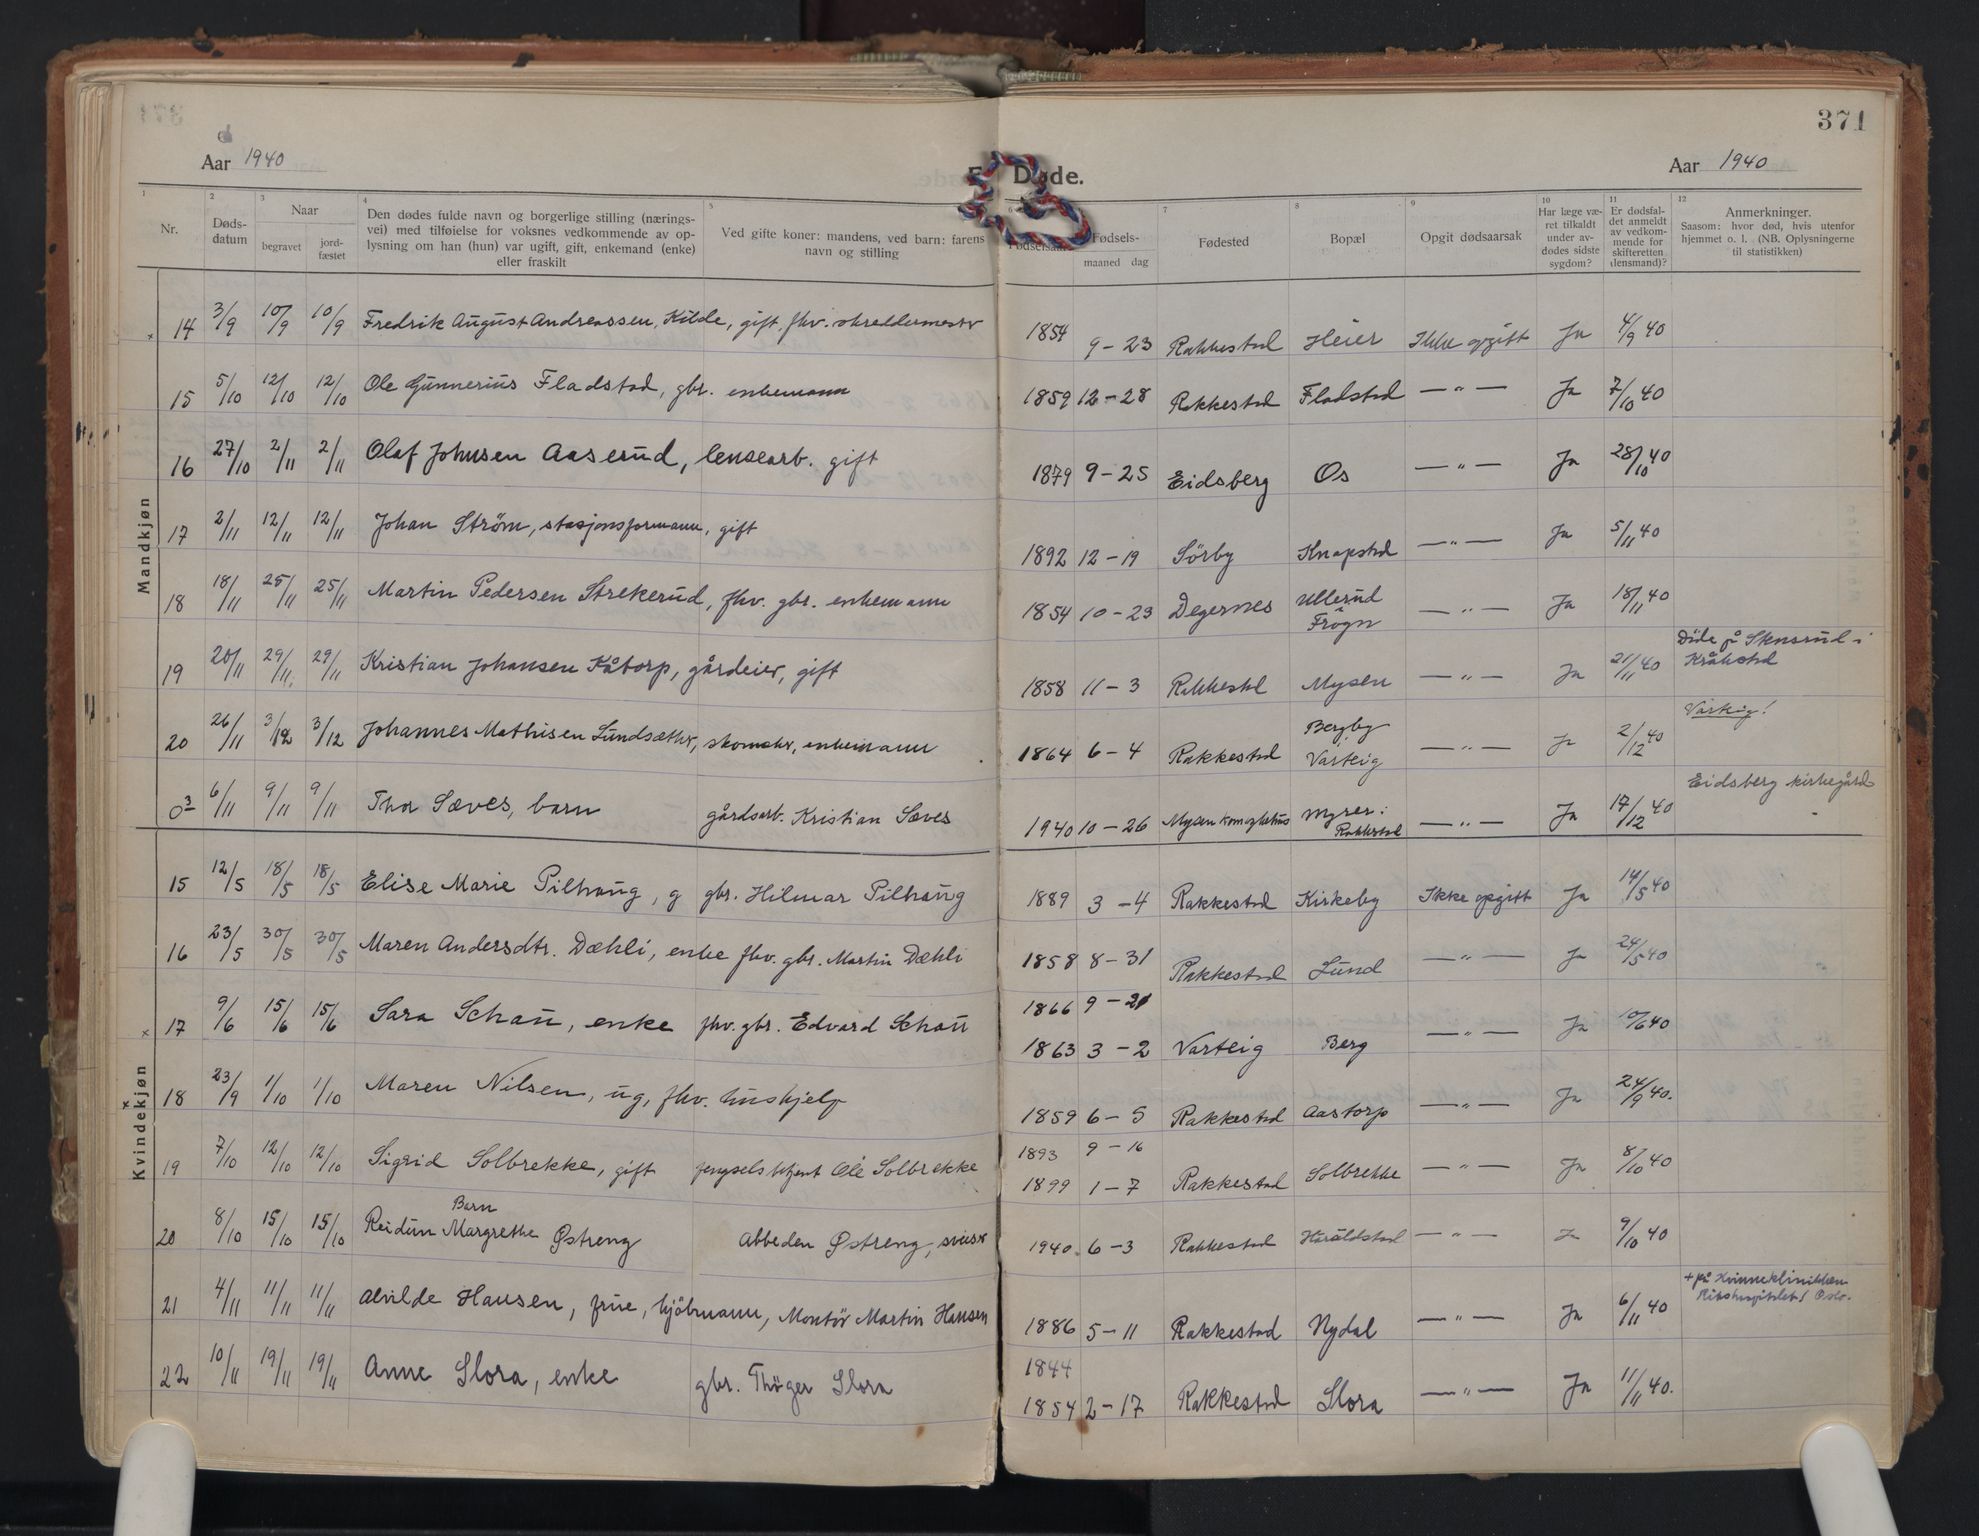 371
Aar 1940
Døde.
Aar 1940
1 2 3 4 5 7 8 9 10 11 12
Nr.
Døds-
datum
Naar
begravet
jord-
fæstet
Den dødes fulde navn og borgerlige stilling (nærings-
vei) med tilføielse for voksnes vedkommende av op-
lysning om han (hun) var ugift, gift, enkemand (enke)
eller fraskilt
Ved gifte koner: mandens, ved barn: farens
navn og stilling
Fødselsaar
Fødsels-
maaned dag
Fødested
Bopæl
Opgit dødsaarsak
Har læge væ-
ret tilkaldt
under av-
dødes sidste
sygdom?
Er dødsfal-
det anmeldt
av vedkom-
mende for
skifteretten
(lensmand)?
Anmerkninger.
Saasom: hvor død, hvis utenfor
hjemmet o. l. (NB. Oplysningerne
til statistikken)
Mandkjøn
14 3/9 10/9 10/9 Fredrik August Andreassen, Kilde, gift, fhv. skreddermester 1854 9-23 Rakkestad Heier Ikke opgitt Ja 4/9 40
15 5/10 12/10 12/10 Ole Gunnerius Fladstad, gbr. enkemann 1859 12-28 Rakkestad Fladstad —"— Ja 7/10 40
16 27/10 2/11 2/11 Olaf Johnsen Aaserud, lensearb. gift 1879 9-25 Eidsberg Os —"— Ja 28/10 40
17 2/11 12/11 12/11 Johan Strøm, stasjonsformann, gift 1892 12-19 Sörby Knapstad —"— Ja 5/11 40
18 18/11 25/11 25/11 Martin Pedersen Strekerud, fhv. gbr. enkemann 1854 10-23 Degernes Ullerud
Frogn —"— Ja 18/11 40
19 20/11 29/11 29/11 Kristian Johansen Kåtorp, gårdeier, gift 1858 11-3 Rakkestad Mysen —"— Ja 21/11 40 Döde på i
Kråkstad
20 26/11 3/12 3/12 Johannes Mathisen Lundsæther, skomaker, enkemann 1864 6-4 Rakkestad Bergby
Varteig —"— Ja 2/12 40 Varteig!
03 6/11 9/11 9/11 Thor Sæves, barn gårdsarb. Kristian Sæves 1940 10-26 Mysen Myrer i
Rakkestad —"— Ja 17/12 40 Eidsberg kirkegård
Kvindekjøn
15 12/5 18/5 18/5 Elise Marie Pilhaug, g gbr. Hilmar Pilhaug 1889 3-4 Rakkestad Kirkeby Ikke opgitt Ja 14/5 40
16 23/5 30/5 30/5 Maren Andersdtr. Dæhli, enke fhv. gbr. Martin Dæhli 1858 8-31 Rakkestad Lund —"— Ja 24/5 40
1866 9-21
17 9/6 15/6 15/6 Sara Schau, enke fhv. gbr. Edvard Schau 1863 3-2 Varteig Berg —"— Ja 10/6 40
18 23/9 1/10 1/10 Maren Nilsen, ug, fhv. hushjelp 1859 6-5 Rakkestad Aastorp —"— Ja 24/9 40.
1893 9-16
19 7/10 12/10 12/10 Sigrid Solbrekke, gift fengselsbetjent Ole Solbrekke 1899 1-7 Rakkestad Solbrekke —"— Ja 8/10 40
Barn
20 8/10 15/10 15/10 Reidun Margrethe Østreng Abbeden Østreng, sveiser 1940 6-3 Rakkestad Haraldstad —"— Ja 9/10 40
21 4/11 11/11 11/11 Alvilde Hansen, frue, kjöbmann, Montör Martin Hansen 1886 5-11 Rakkestad Nydal —"— Ja 6/11 40 + på Kvinneklinikken
Rikshospitalet, Oslo.
1844
22 10/11 19/11 19/11 Anne Slora, enke gbr. Thøger Slora 1854 2-17 Rakkestad Slora —"— Ja 11/11 40.